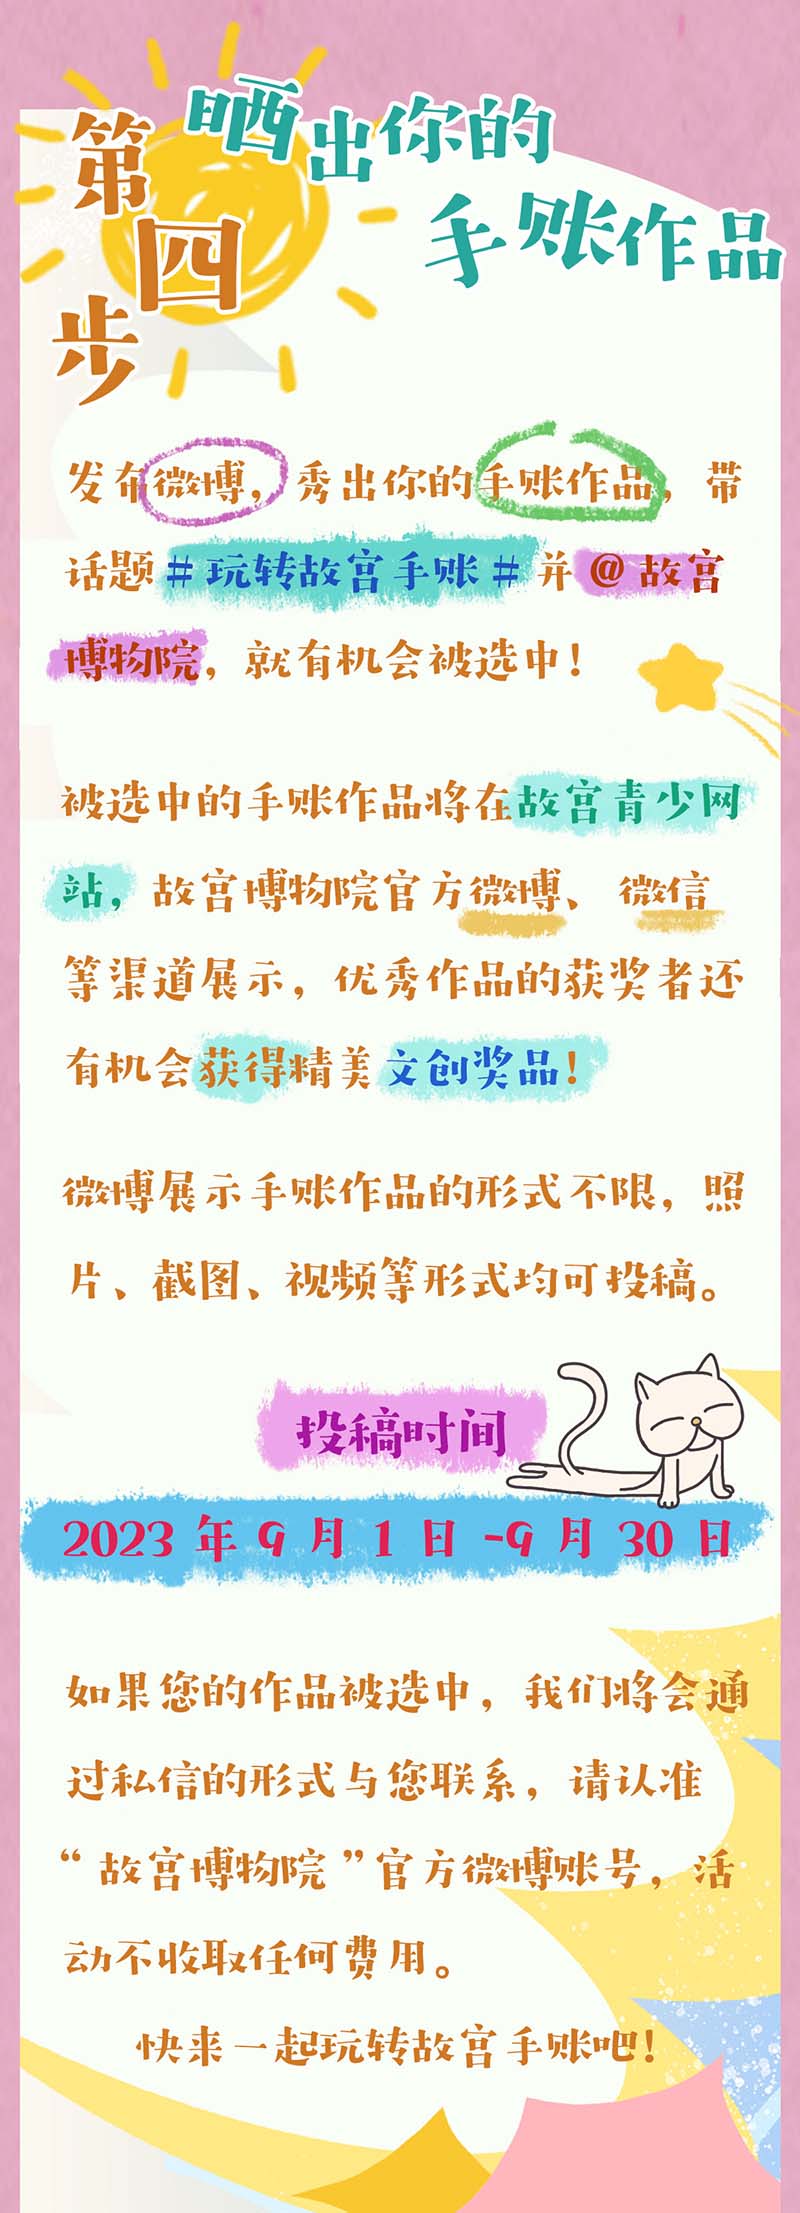 第四步
晒出你的
手账作品
发布微博，秀出你的手账作品，带
话题#玩转故宫手账#并@故宫
博物院，就有机会被选中！
被选中的手账作品将在故宫青少网
站，故宫博物院官方微博、微信
等渠道展示，优秀作品的获奖者还
有机会获得精美文创奖品！
微博展示手账作品的形式不限，照
片、截图、视频等形式均可投稿。
投稿时间
2023年9月1日-9月30日
如果您的作品被选中，我们将会通
过私信的形式与您联系，请认准
“故宫博物院”官方微博账号，活
动不收取任何费用。
快来一起玩转故宫手账吧！